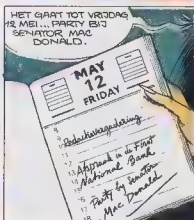 HET GAAT TOT VRIJDAG
12 MEI... PARTY BIJ
SENATOR MAC
DONALD.
MAY
12
FRIDAY
Redactievergadering
Afspraak in de First
National Bank
Party by Senator
Mac Donald